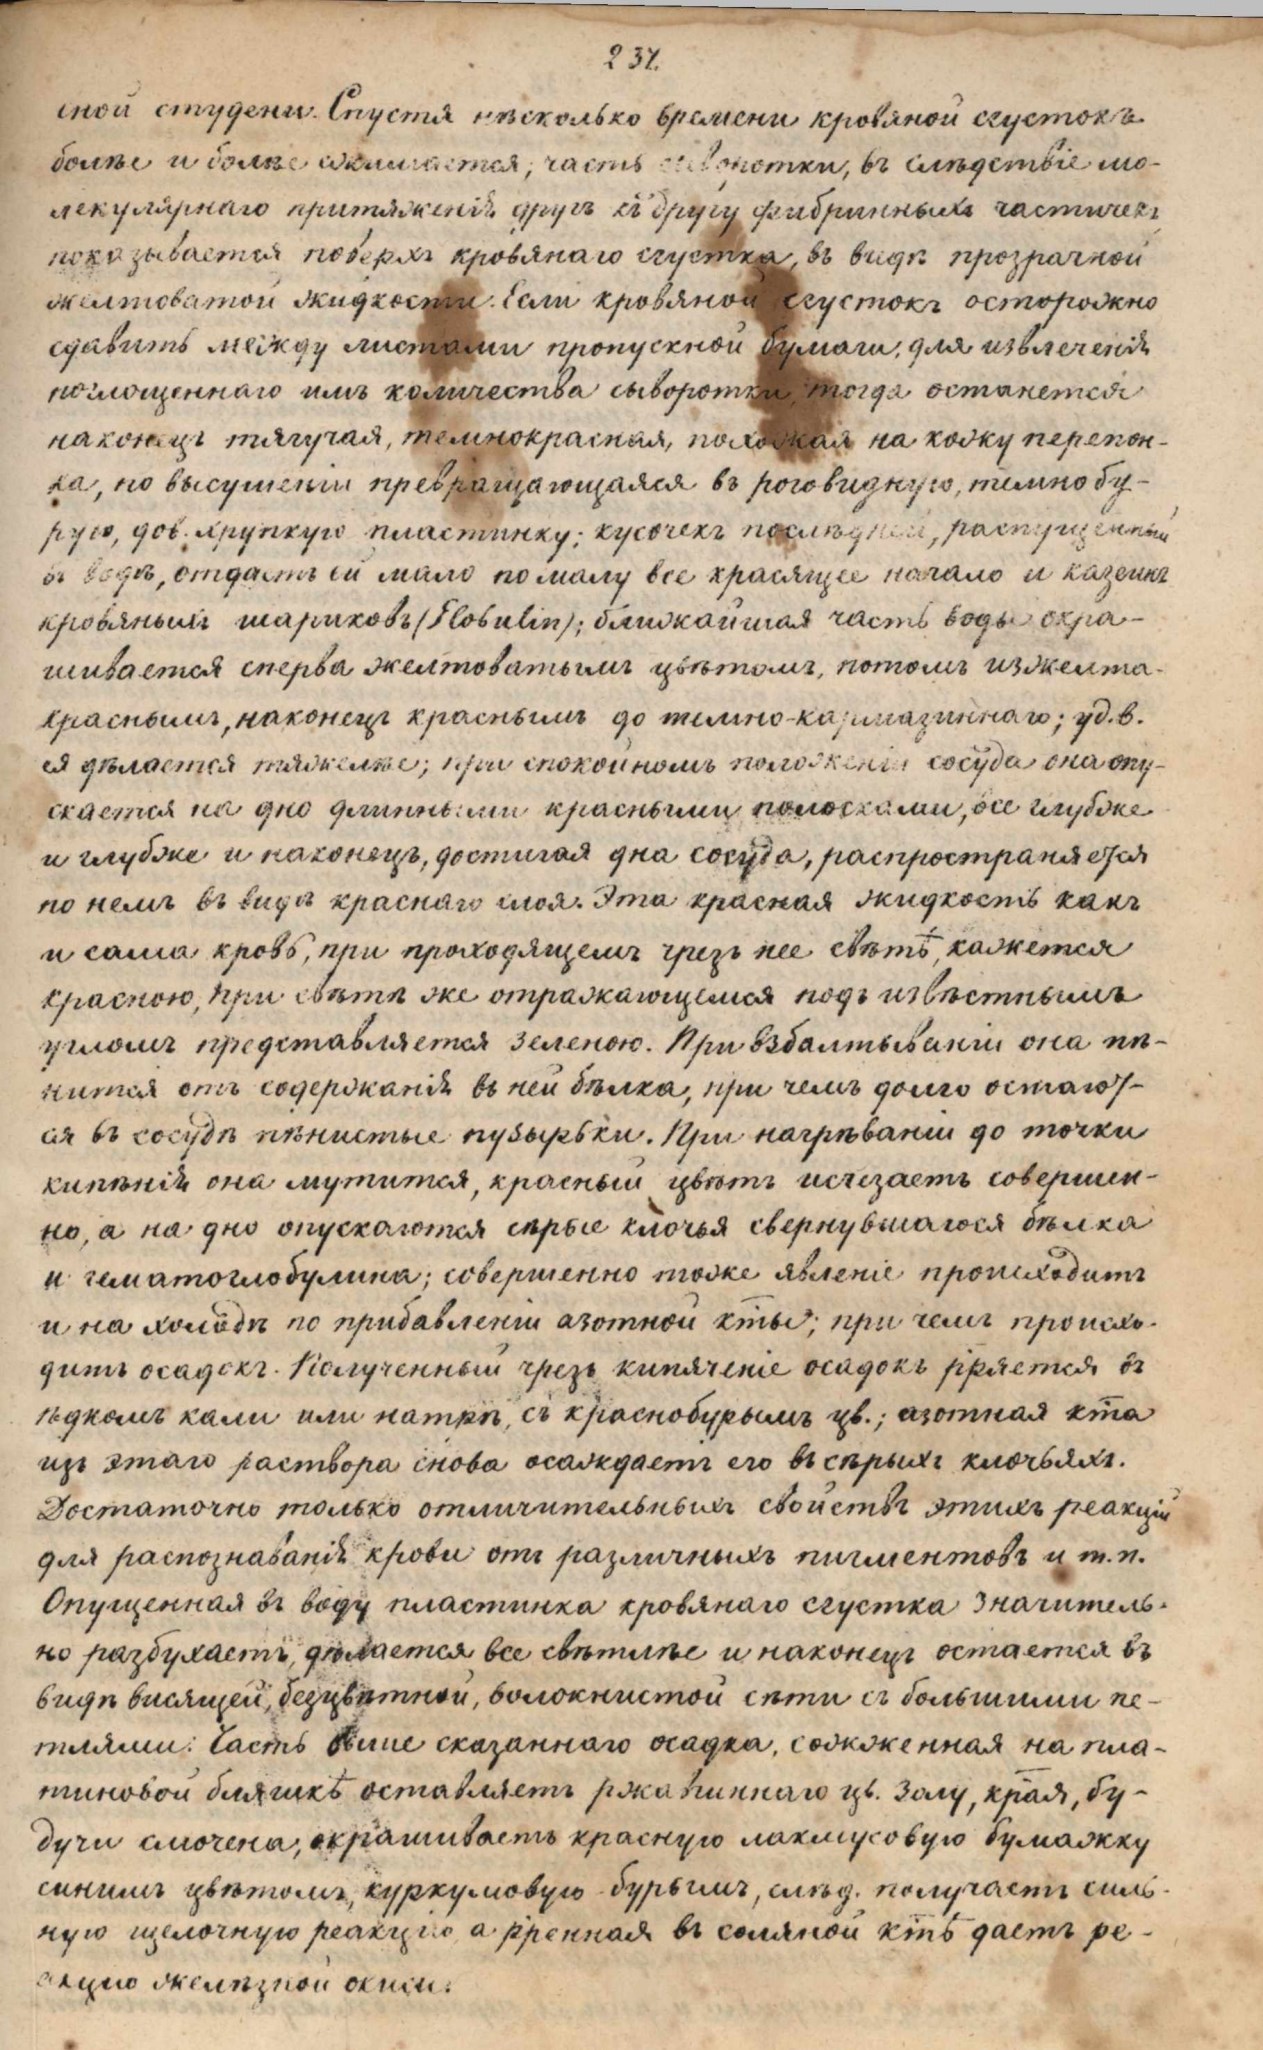 237.
сной студени. Спустя нѣсколько времени кровяной сгустокъ
болѣе и болѣе сжимается; часть сыворотки, въ слѣдствіе мо-
лекулярнаго притяженія другъ къ другу фибринныхъ частичекъ
показывается поверхъ кровянаго сгустка, въ видѣ прозрачной
желтоватой жидкости. Если кровяной сгустокъ осторожно
сдавить между листами пропускной бумаги, для извлеченія
поглощеннаго имъ количества сыворотки, тогда останется
наконецъ тягучая, темнокрасная, похожая на кожу перепон-
ка, по высушеніи превращающаяся въ роговидную, темно бу-
рую, дов. хрупкую пластинку; кусочекъ послѣдней, распущенный
въ водѣ, отдастъ ей мало по малу все красящее начало и казеинъ
кровяныхъ шариковъ (Globulin); ближайшая часть воды окра-
шивается сперва желтоватымъ цвѣтомъ, потомъ изжелта-
краснымъ, наконецъ краснымъ до темно-кармазиннаго; уд. в.
ея дѣлается тяжелѣе; при спокойномъ положеніи сосуда она опу-
скается на дно длинными красными полосками, все глубже
и глубже и наконецъ, достигая дна сосуда, распространяется
по немъ въ видѣ краснаго слоя. Эта красная жидкость какъ
и сама кровь, при проходящемъ чрезъ нее свѣтѣ, кажется
красною, при свѣтѣ же отражающемся подъ извѣстнымъ
угломъ представляется зеленою. При взбалтываніи она пѣ-
нится отъ содержанія въ ней бѣлка, при чемъ долго остают-
ся въ сосудѣ пѣнистые пузырьки. При нагрѣваніи до точки
кипѣнія она мутится, красный цвѣтъ исчезаетъ совершен-
но, а на дно опускаются сѣрые клочья свернувшагося бѣлка
и гематоглобулина; совершенно тоже явленіе происходитъ
и на холодѣ по прибавленіи азотной кты; при чемъ происхо-
дитъ осадокъ. Полученный чрезъ кипяченіе осадокъ рряется въ
ѣдкомъ кали или натрѣ, съ краснобурымъ цв.; азотная кта
изъ этаго раствора снова осаждаетъ его въ сѣрыхъ клочьяхъ.
Достаточно только отличительныхъ свойствъ этихъ реакцій
для распознаванія крови отъ различныхъ пигментовъ и т.п.
Опущенная въ воду пластинка кровянаго сгустка значитель-
но разбухаетъ, дѣлается все свѣтлѣе и наконецъ остается въ
видѣ висящей, безцвѣтной, волокнистой сѣти съ большими пе-
тлями. Часть выше сказаннаго осадка, сожженная на пла-
тиновой бляшкѣ оставляетъ ржавиннаго цв. золу, края, бу-
дучи смочена, окрашиваетъ красную лакмусовую бумажку
синимъ цвѣтомъ, куркумовую - бурымъ, слѣд. получаетъ силь-
ную щелочную реакцію, а рренная въ соляной ктѣ даетъ ре-
акцію желѣзной окиси.